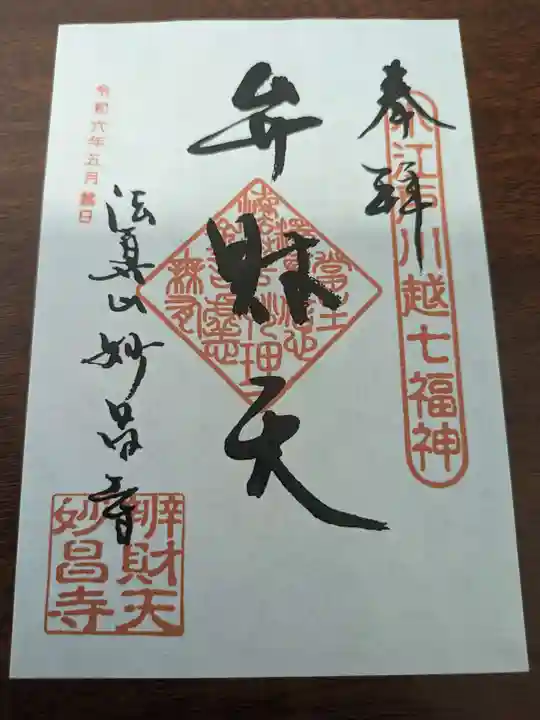 奉拝
小江戸川越七福神
弁財天
令和六年五月吉日
法眞山妙昌寺
辨財天
妙昌寺